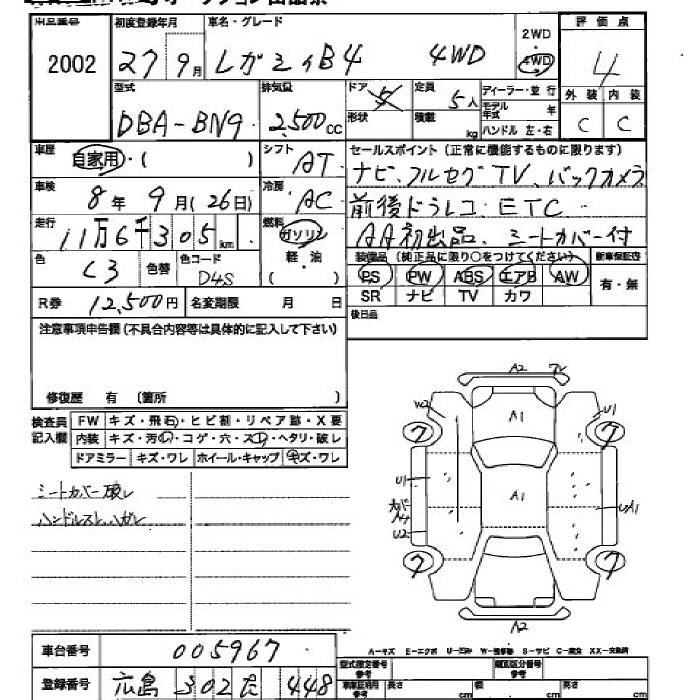 2002
初度登録年月
27 9月
車名・グレード
レガシィB4 4WD
2WD
・
4WD
評価点
4
外装 内装
C C
型式
DBA-BN9
排気量
2,500cc
ドア
5
形状
定員
5人
積載 kg
ディーラー・並行
モデル年式 年
ハンドル 左・右
車歴
自家用・( )
シフト
AT
セールスポイント(正常に機能するものに限ります)
ナビ、フルセグTV、バックカメラ
前後ドラレコ. ETC.
AA初出品、シートカバー付
車検
8年 9月(26日)
冷房
AC
走行
11万6千305km
燃料
ガソリン
軽・油
( )
色
C3
色替
色コード
D4S
装備品(純正品に限り○をつけてください)
新車保証書
PS PW ABS エアB AW
有・無
SR ナビ TV カワ
R券 12,500円
名変期限 月 日
後日品
注意事項申告欄(不具合内容等は具体的に記入して下さい)
修復歴 有 〔箇所 〕
検査員
記入欄
FW キズ・飛石・ヒビ割・リペア跡・X要
内装 キズ・汚・コゲ・穴・スレ・ヘタリ・破レ
ドアミラー キズ・ワレ ホイール・キャップ キズ・ワレ
シートカバー破レ
ハンドルスレ、ハガレ
A2
W2
A1
U1
7
7
U1
A1
カバー
A4
U2
UA1
7
7
A2
A-キズ E-エクボ U-凹み W-補修跡 S-サビ C-腐食 XX-交換済
車台番号
005967
登録番号
広島 302 た 448
型式指定番号
参考
類別区分番号
参考
長さ cm
幅 cm
高さ cm